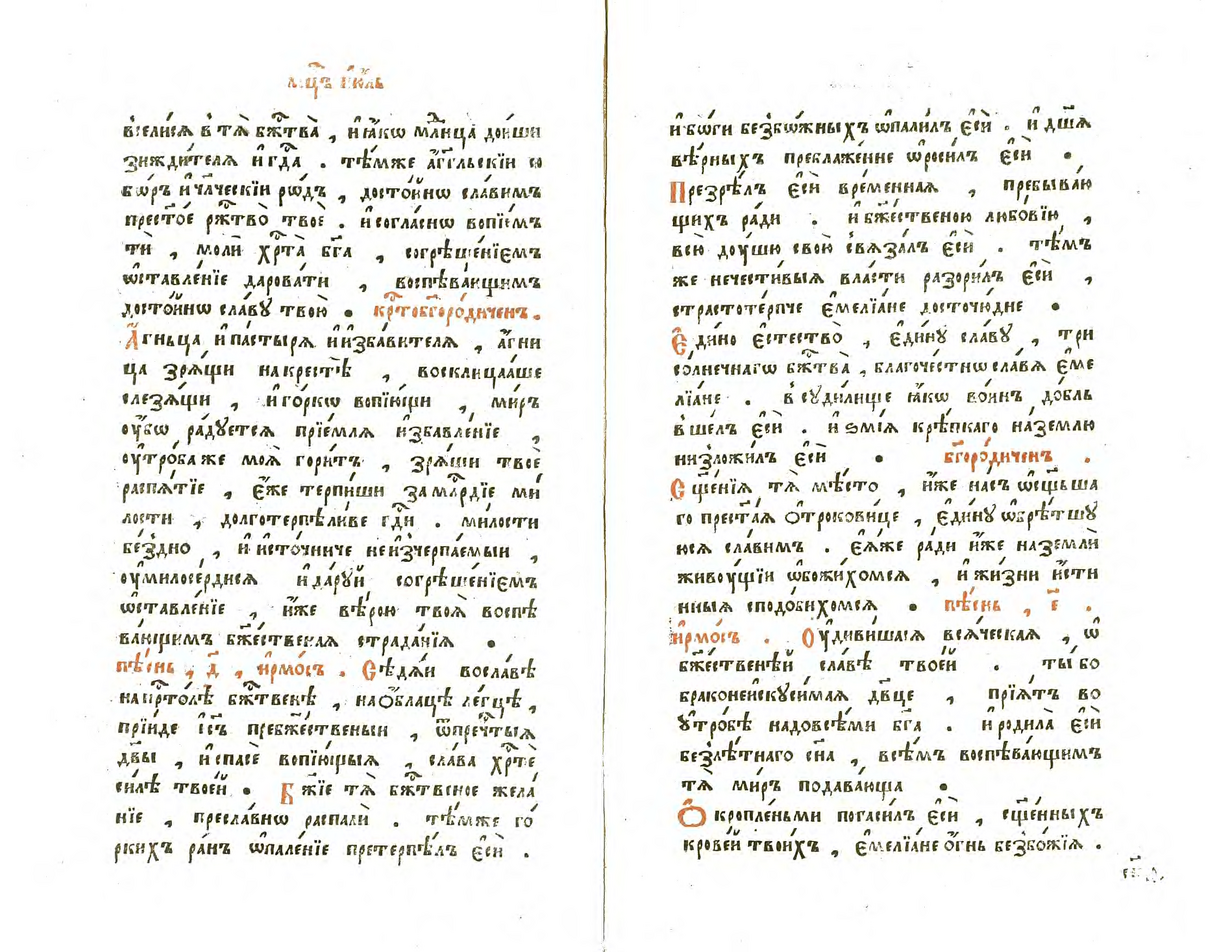 мцⷭ҇ъ і҆ю́ль
всели́сѧ в тѧ̀ бжⷭ҇тва̀ , и҆ ꙗ҆́кѡ млⷣнца дои́ши
зижди́телѧ и҆ гдⷭ҇а . тѣ́мже а҆́гг҃льскїи со
бѡ́ръ и҆ чл҃ческїи рѡ́дъ , досто́йнѡ сла́вимъ
престо́е ржⷭ҇тво̀ твоѐ . и҆ согла́снѡ вопїе́мъ
ти̏ , моли̏ хрⷭ҇та̀ бг҃а , согрѣше́нїемъ
ѡ҆ставле́нїе дарова́ти , воспѣва́ющимъ
досто́йнѡ сла́вꙋ твою̀ • крⷭ҇тобг҃оро́диченъ .
А҆́гньца и҆ па́стырѧ и҆ и҆зба́вителѧ , а҆́гни
ца зрѧ́щи на крестѣ̀ , восклица́аше
слезѧ́щи , и҆ го́ркѡ вопїю́щи , ми́ръ
оу҆́бѡ ра́дꙋетсѧ прїе́млѧ и҆збавле́нїе ,
оу҆тро́ба же моѧ̀ гори́тъ , зрѧ́щи твоѐ
распѧ́тїе , є҆́же терпи́ши за млⷭ҇рдїе ми
лости , долготерпѣли́ве гдⷭ҇и . ми́лости
бе́здно , и҆ и҆сто́чниче неи҆зчерпа́емыи ,
оу҆милосе́рдисѧ и҆ да́рꙋй согрѣше́нїемъ
ѡ҆ставле́нїе , и҆̀же вѣ́рою твоѧ̀ воспѣ
ва́ющимъ бжⷭ҇ественаѧ страда́нїѧ •
пѣ́снь , д҃ , і҆рмо́съ . Сѣдѧ́и во сла́вѣ
на прⷭ҇то́лѣ бжⷭ҇твенѣ , на о҆́блацѣ ле́гцѣ ,
прїи́де і҆с҃ъ пребжⷭ҇ественыи , ѿ пречⷭ҇тыѧ
дв҃ы , и҆ спасѐ вопїю́щыѧ , сла́ва хрⷭ҇тѐ
си́лѣ твое́й • Бж҃їе тѧ̀ бжⷭ҇твеное жела
нїе , пресла́внѡ распалѝ . тѣ́мже го́
ркихъ ра́нъ ѡ҆пале́нїе претерпѣ́лъ є҆сѝ .
и҆ бо́ги безбо́жныхъ ѡ҆пали́лъ є҆сѝ . и҆ дш҃ѧ
вѣ́рныхъ преблаже́нне ѡ҆роси́лъ є҆сѝ •
Презрѣ́лъ є҆сѝ вре́меннаѧ , пребыва́ю
щихъ ра́ди . и҆ бж҃е́ственою любо́вїю ,
всю̀ дꙋ́шю свою̀ свѧза́лъ є҆сѝ . тѣ́мъ
же нечести́выѧ вла́сти разори́лъ є҆сѝ ,
страстоте́рпче є҆мелїа́не досточю́дне •
Е҆ди́но є҆стество̀ , є҆ди́нꙋ сла́вꙋ , три
со́лнечнагѡ бжⷭ҇тва̀ , благоче́стнѡ сла́вѧ є҆ме
лїа́не . в сꙋди́лище ꙗ҆́кѡ во́инъ до́бль
вше́лъ є҆сѝ . и҆ ѕмі́ѧ крѣ́пкаго на зе́млю
низложи́лъ є҆сѝ • бг҃оро́диченъ .
Сщ҃е́нїѧ тѧ̀ мѣ́сто , и҆́же на́съ ѡ҆сщ҃ьша
го прест҃а́ѧ о҆трокови́це , є҆ди́нꙋ ѡ҆брѣ́тшꙋ
юсѧ сла́вимъ . є҆ѧ́же ра́ди и҆́же на земли̏
живꙋ́щїи ѡ҆божи́хомсѧ , и҆ жи́зни и҆́сти
нныѧ сподо́бихомсѧ • пѣ́снь , є҃ .
і҆рмо́съ . Оу҆диви́шасѧ всѧ́ческаѧ , ѡ҆
бж҃е́ственѣй сла́вѣ твое́й . ты́ бо
браконеи҆скꙋси́маѧ дв҃це , прїѧ́тъ во
ꙋ҆тро́бѣ надо всѣ́ми бг҃а . и҆ родила̀ є҆сѝ
безлѣ́тнаго сн҃а , всѣ́мъ воспѣва́ющимъ
тѧ̀ ми́ръ подава́юща •
О҆кропле́ньми погаси́лъ є҆сѝ , сщ҃е́нныхъ
крове́й твои́хъ , є҆мелїа́не о҆́гнь безбо́жїѧ .